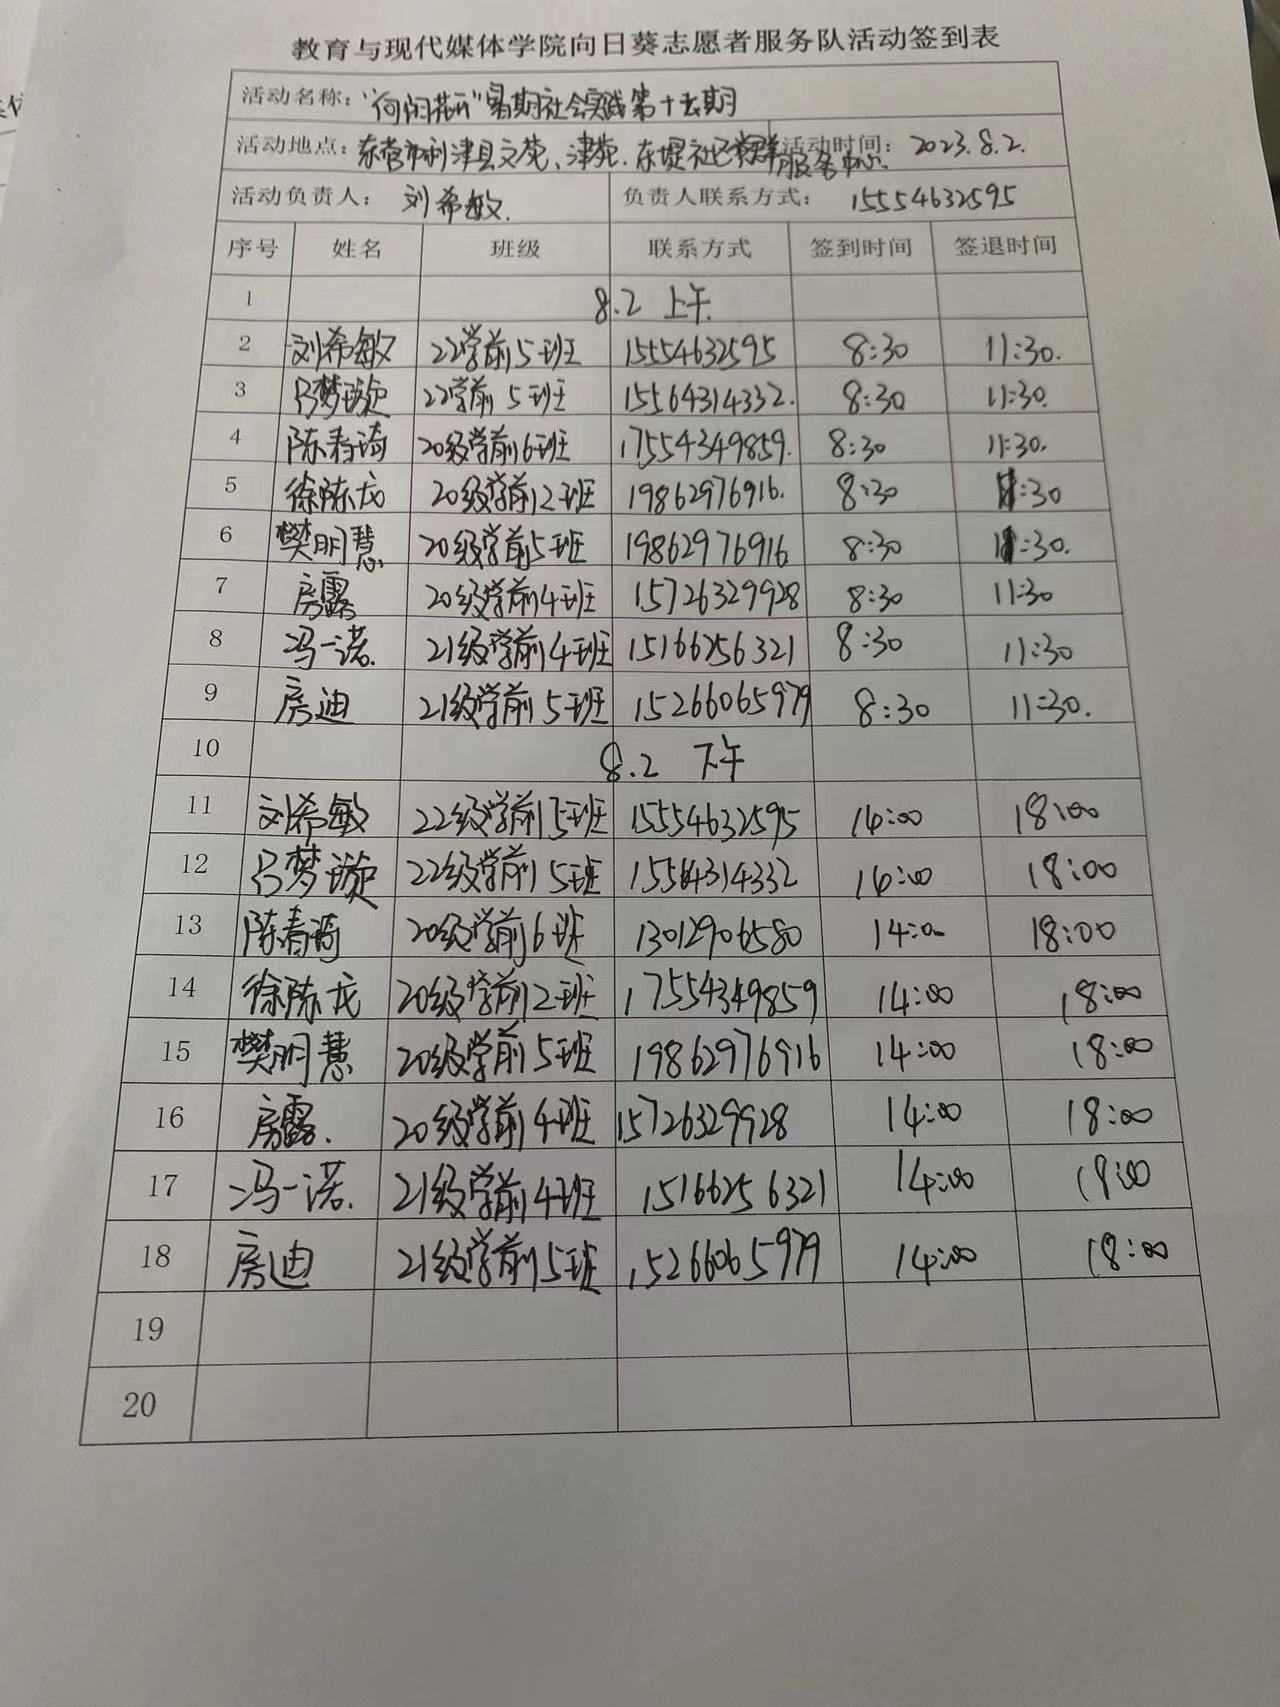 教育与现代媒体学院向日葵志愿者服务队活动签到表
活动名称: 暑期社会实践第十 期
活动地点: 东营市利津县文苑、津苑、东堤社区党群服务中心 活动时间: 2023.8.2.
活动负责人: 刘希敏. 负责人联系方式: 15554632595
序号 姓名 班级 联系方式 签到时间 签退时间
1 8.2 上午.
2 刘希敏 22学前5班 15554632595 8:30 11:30.
3 吕梦璇 22学前5班 15564314332. 8:30 11:30.
4 陈春琦 20级学前6班 17554349859. 8:30 11:30.
5 徐陈龙 20级学前2班 19862976916. 8:30 11:30
6 樊明慧 20级学前5班 19862976916 8:30 11:30.
7 房露 20级学前4班 15726329928 8:30 11:30
8 冯一诺. 21级学前4班 15166256321 8:30 11:30
9 房迪 21级学前5班 15266065979 8:30 11:30.
10 8.2 下午
11 刘希敏 22级学前5班 15554632595 14:00 18:00
12 吕梦璇 22级学前5班 15564314332 14:00 18:00
13 陈春琦 20级学前6班 13012906580 14:00 18:00
14 徐陈龙 20级学前2班 17554349859 14:00 18:00
15 樊明慧 20级学前5班 19862976916 14:00 18:00
16 房露. 20级学前4班 15726329928 14:00 18:00
17 冯一诺. 21级学前4班 15166256321 14:00 18:00
18 房迪 21级学前5班 15266065979 14:00 18:00
19
20